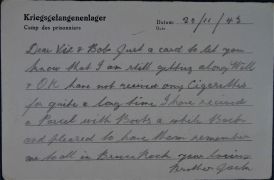 Kriegsgefangenenlager
Camp des prisonniers
Datum: 20/11/43
Date
Dear Vic & Bob Just a card to let you
know that I am still getting along Well
& O.K have not received any Cigarettes
for quite a long time I have received
a Parcel with Boots a while back
and pleased to have them remember
me to all in Bruce Rock your loving
Brother Jack